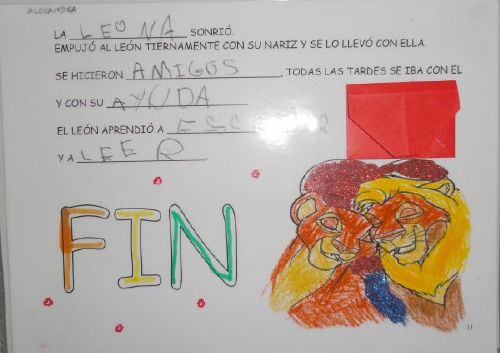 ALEJANDRA
LA LEONA SONRIÓ.
EMPUJÓ AL LEÓN TIERNAMENTE CON SU NARIZ Y SE LO LLEVÓ CON ELLA.
SE HICIERON AMIGOS, TODAS LAS TARDES SE IBA CON EL
Y CON SU AYUDA
EL LEÓN APRENDIÓ A ESCRIBIR
Y A LEER.
FIN
11